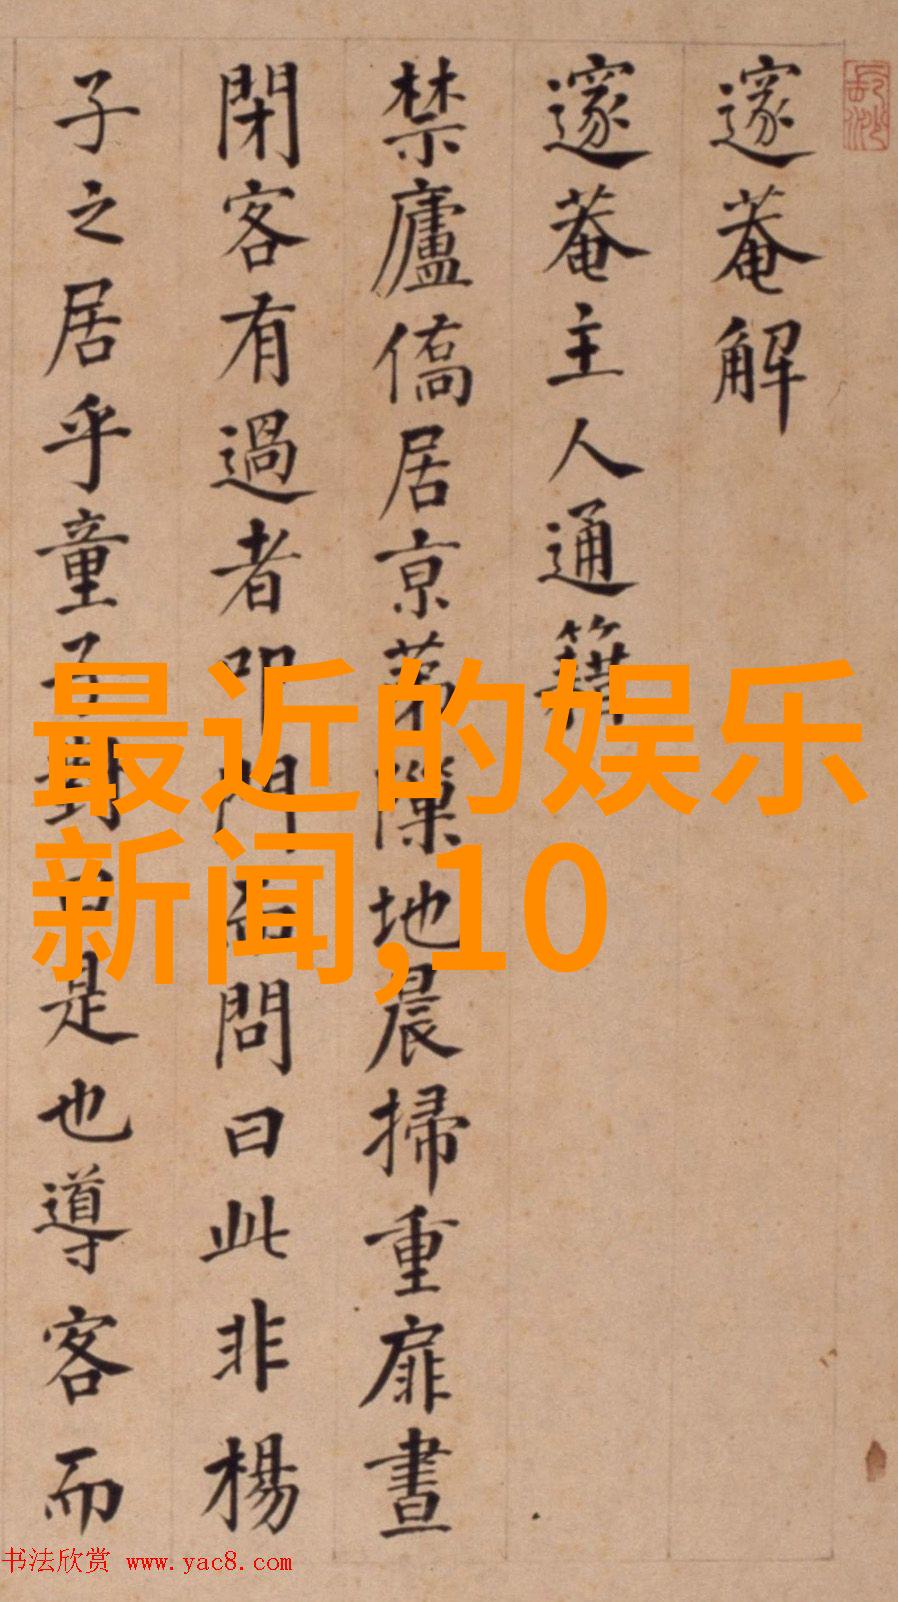 邃菴解
邃菴主人通籍
禁廬僑居京第隟地晨掃重扉晝
閉客有過者叩門而問曰此非楊
子之居乎童子對曰是也導客而
最近的娱乐
新闻,10
书法欣赏 www.yac8.com